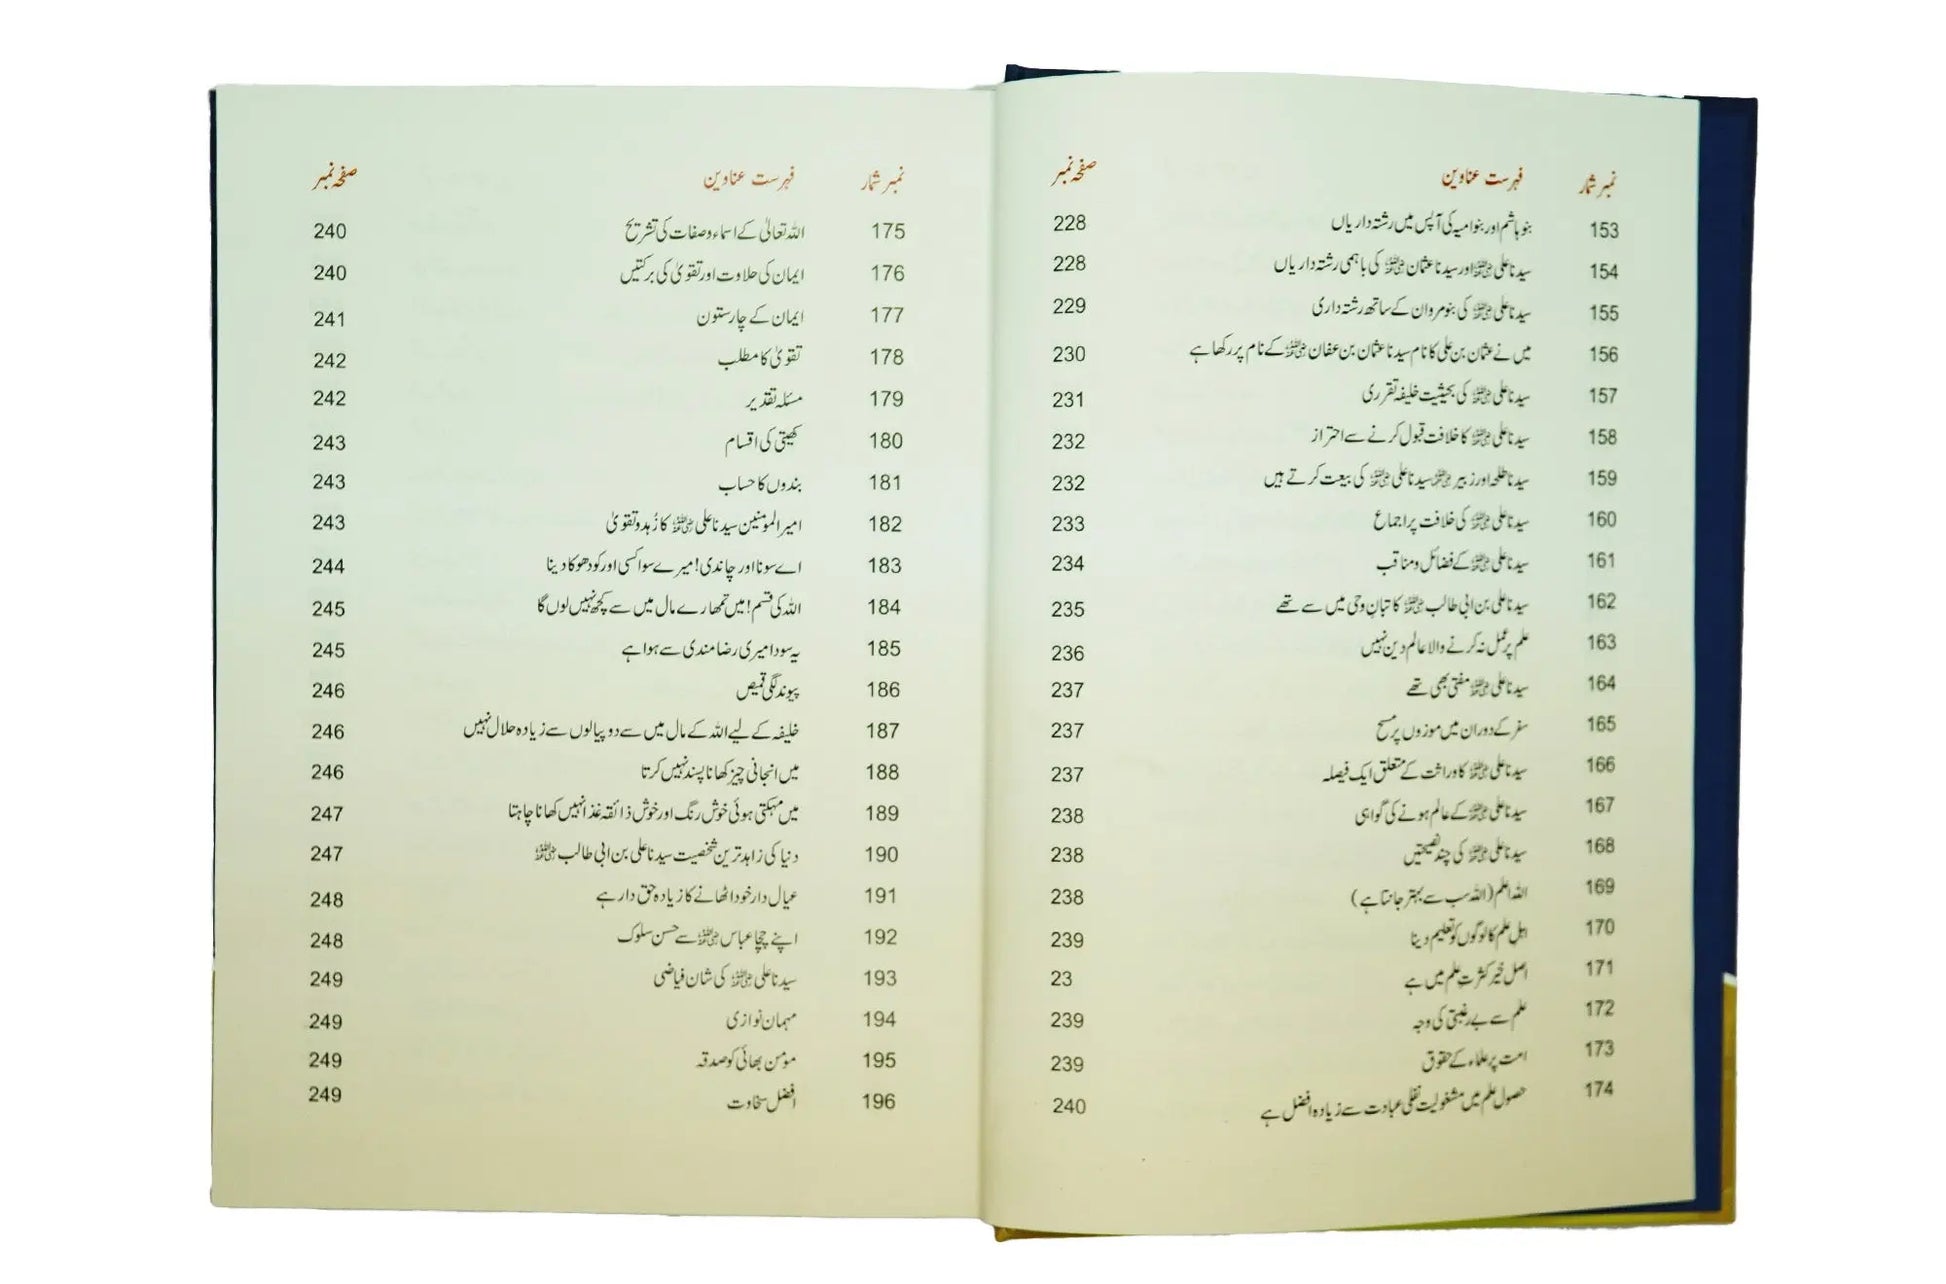 نمبر شمار فہرست عناوین صفحہ نمبر
153 بنو ہاشم اور بنو امیہ کی آپس میں رشتہ داریاں 228
154 سیدنا علی رضی اللہ عنہ اور سیدنا عثمان رضی اللہ عنہ کی باہمی رشتہ داریاں 228
155 سیدنا علی رضی اللہ عنہ کی بنو مروان کے ساتھ رشتہ داری 229
156 میں نے عثمان بن علی کا نام سیدنا عثمان بن عفان رضی اللہ عنہ کے نام پر رکھا ہے 230
157 سیدنا علی رضی اللہ عنہ کی بحیثیت خلیفہ تقرری 231
158 سیدنا علی رضی اللہ عنہ کا خلافت قبول کرنے سے احتراز 232
159 سیدنا طلحہ اور زبیر رضی اللہ عنہما سیدنا علی رضی اللہ عنہ کی بیعت کرتے ہیں 232
160 سیدنا علی رضی اللہ عنہ کی خلافت پر اجماع 233
161 سیدنا علی رضی اللہ عنہ کے فضائل و مناقب 234
162 سیدنا علی بن ابی طالب رضی اللہ عنہ کاتبانِ وحی میں سے تھے 235
163 علم پر عمل نہ کرنے والا عالم دین نہیں 236
164 سیدنا علی رضی اللہ عنہ مفتی بھی تھے 237
165 سفر کے دوران میں موزوں پر مسح 237
166 سیدنا علی رضی اللہ عنہ کا وراثت کے متعلق ایک فیصلہ 237
167 سیدنا علی رضی اللہ عنہ کے عالم ہونے کی گواہی 238
168 سیدنا علی رضی اللہ عنہ کی چند نصیحتیں 238
169 اللہ اعلم (اللہ سب سے بہتر جانتا ہے) 238
170 اہل علم کا لوگوں کو تعلیم دینا 239
171 اصل خیر کثرتِ علم میں ہے 23
172 علم سے بے رغبتی کی وجہ 239
173 امت پر علماء کے حقوق 239
174 حصول علم میں مشغولیت نفلی عبادت سے زیادہ افضل ہے 240
نمبر شمار فہرست عناوین صفحہ نمبر
175 اللہ تعالیٰ کے اسماء و صفات کی تشریح 240
176 ایمان کی حلاوت اور تقویٰ کی برکتیں 240
177 ایمان کے چار ستون 241
178 تقویٰ کا مطلب 242
179 مسئلہ تقدیر 242
180 کھیتی کی اقسام 243
181 بندوں کا حساب 243
182 امیر المومنین سیدنا علی رضی اللہ عنہ کا زُہد و تقویٰ 243
183 اے سونا اور چاندی! میرے سوا کسی اور کو دھوکا دینا 244
184 اللہ کی قسم! میں تمھارے مال میں سے کچھ نہیں لوں گا 245
185 یہ سودا میری رضا مندی سے ہوا ہے 245
186 پیوند لگی قمیص 246
187 خلیفہ کے لیے اللہ کے مال میں سے دو پیالوں سے زیادہ حلال نہیں 246
188 میں انجانی چیز کھانا پسند نہیں کرتا 246
189 میں مہکتی ہوئی خوش رنگ اور خوش ذائقہ غذا نہیں کھانا چاہتا 247
190 دنیا کی زاہد ترین شخصیت سیدنا علی بن ابی طالب رضی اللہ عنہ 247
191 عیال دار خود اٹھانے کا زیادہ حق دار ہے 248
192 اپنے چچا عباس رضی اللہ عنہ سے حسن سلوک 248
193 سیدنا علی رضی اللہ عنہ کی شان فیاضی 249
194 مہمان نوازی 249
195 مومن بھائی کو صدقہ 249
196 افضل سخاوت 249